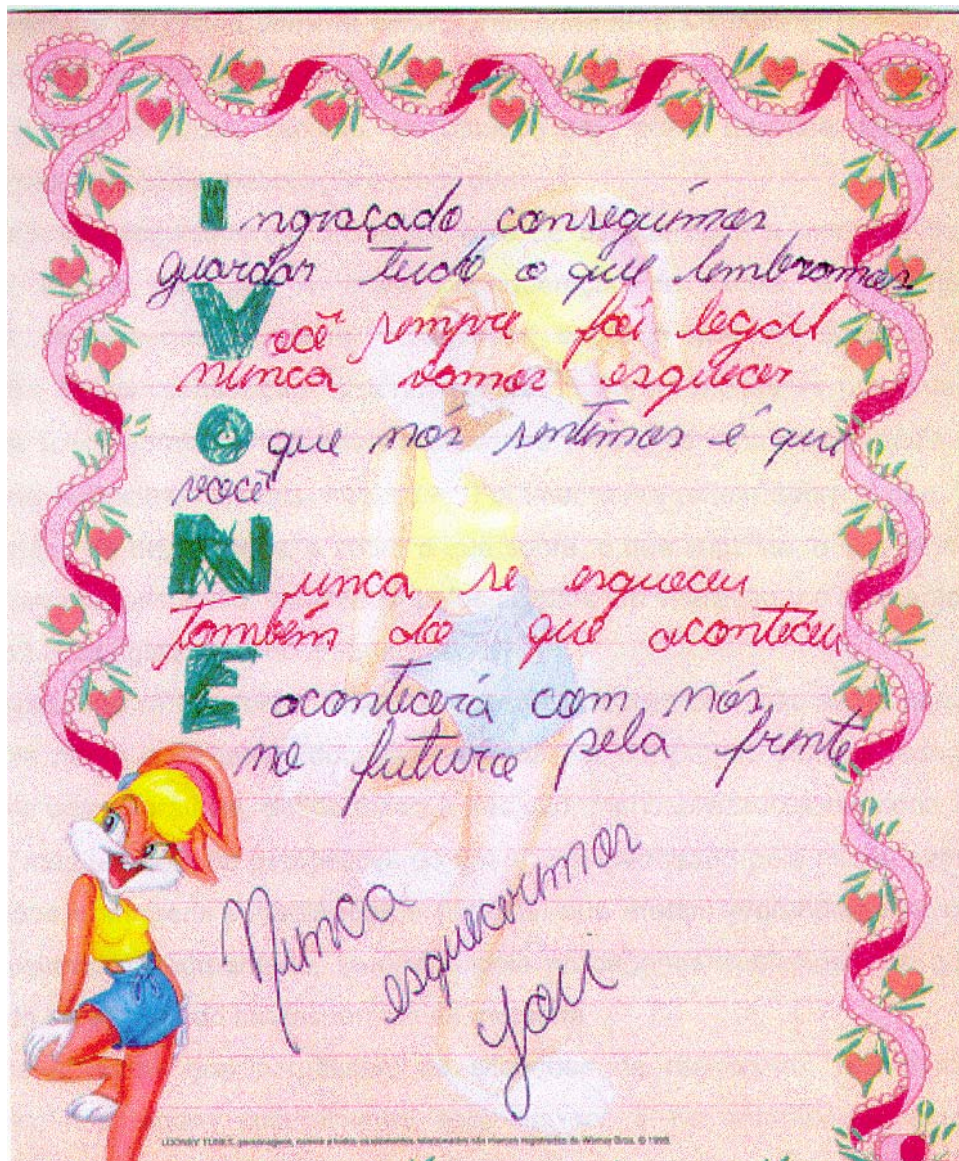 Ingraçado conseguimos
guardar tudo o que lembramos
Você sempre foi legal
nunca vamos esquecer
O que nós sentimos é que
você
Nunca se esqueceu
também do que aconteceu
E acontecerá com nós
no futuro pela frente
Nunca
esquecermos
you
LOONEY TUNES, personagens, nomes e todos os elementos relacionados são marcas registradas de Warner Bros. © 1998.